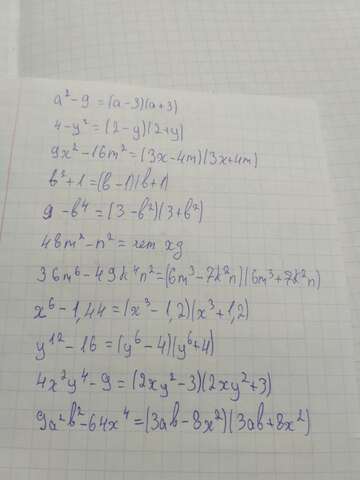 a² - 9 = (a - 3)(a + 3)
4 - y² = (2 - y)(2 + y)
9x² - 16m² = (3x - 4m)(3x + 4m)
b² + 1 = (b - 1)(b + 1)
9 - b⁴ = (3 - b²)(3 + b²)
48m² - n² = хз
36m⁶ - 49k⁴n² = (6m³ - 7k²n)(6m³ + 7k²n)
x⁶ - 1,44 = (x³ - 1,2)(x³ + 1,2)
y¹² - 16 = (y⁶ - 4)(y⁶ + 4)
4x²y⁴ - 9 = (2xy² - 3)(2xy² + 3)
9a²b² - 64x⁴ = (3ab - 8x²)(3ab + 8x²)